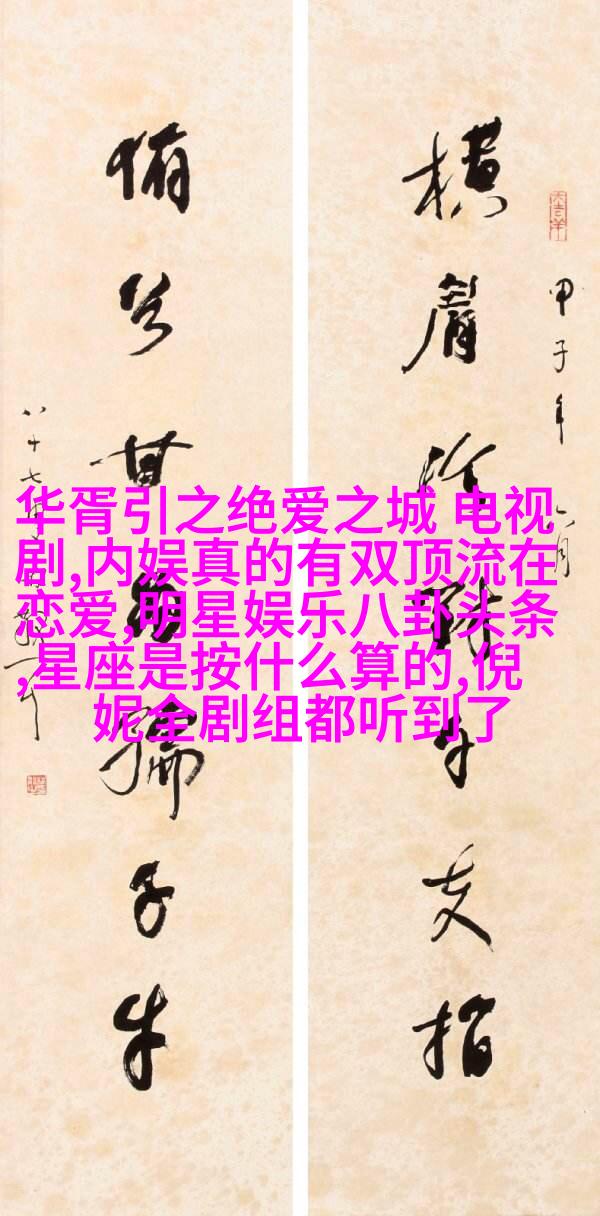 横眉冷對千夫指
甲子年
俯首甘為孺子牛
八十七
华胥引之绝爱之城 电视
剧,内娱真的有双顶流在
恋爱,明星娱乐八卦头条
,星座是按什么算的,倪
妮全剧组都听到了